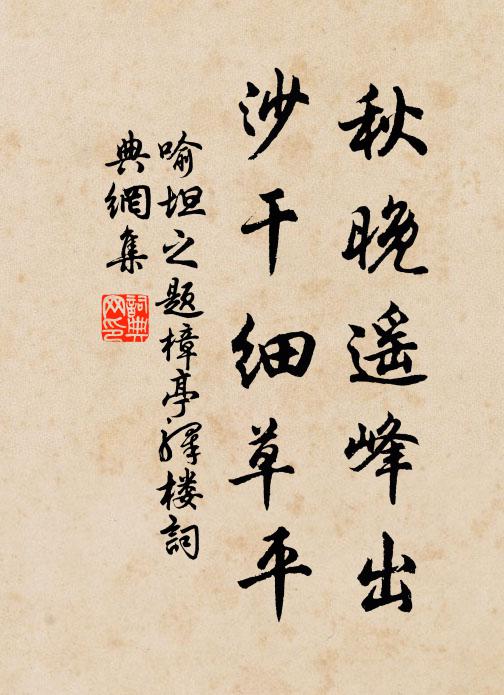 秋晚遥峰出
沙干细草平
喻坦之题樟亭驿楼詞
典網集
詞典网印